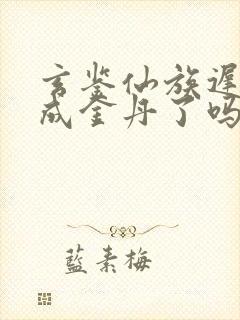 玄鉴仙族遲
成金丹了吗
藍素梅